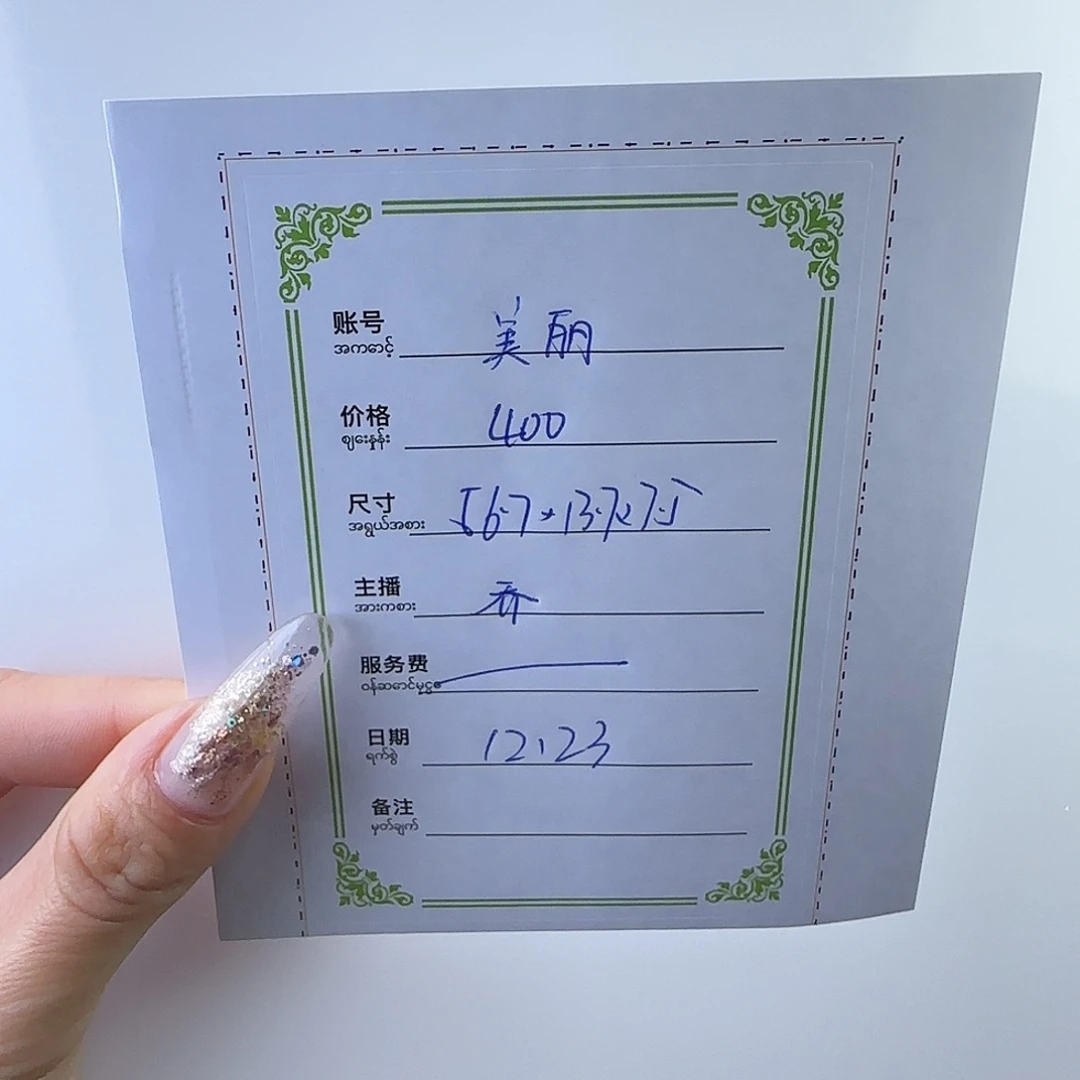 账号 美丽
အကောင့်
价格 400
ဈေးနှုန်း
尺寸 56.7*13.7*7.5
အရွယ်အစား
主播 乔
အားကစား
服务费
ဝန်ဆောင်မှု
日期 12.23
ရက်စွဲ
备注
မှတ်ချက်